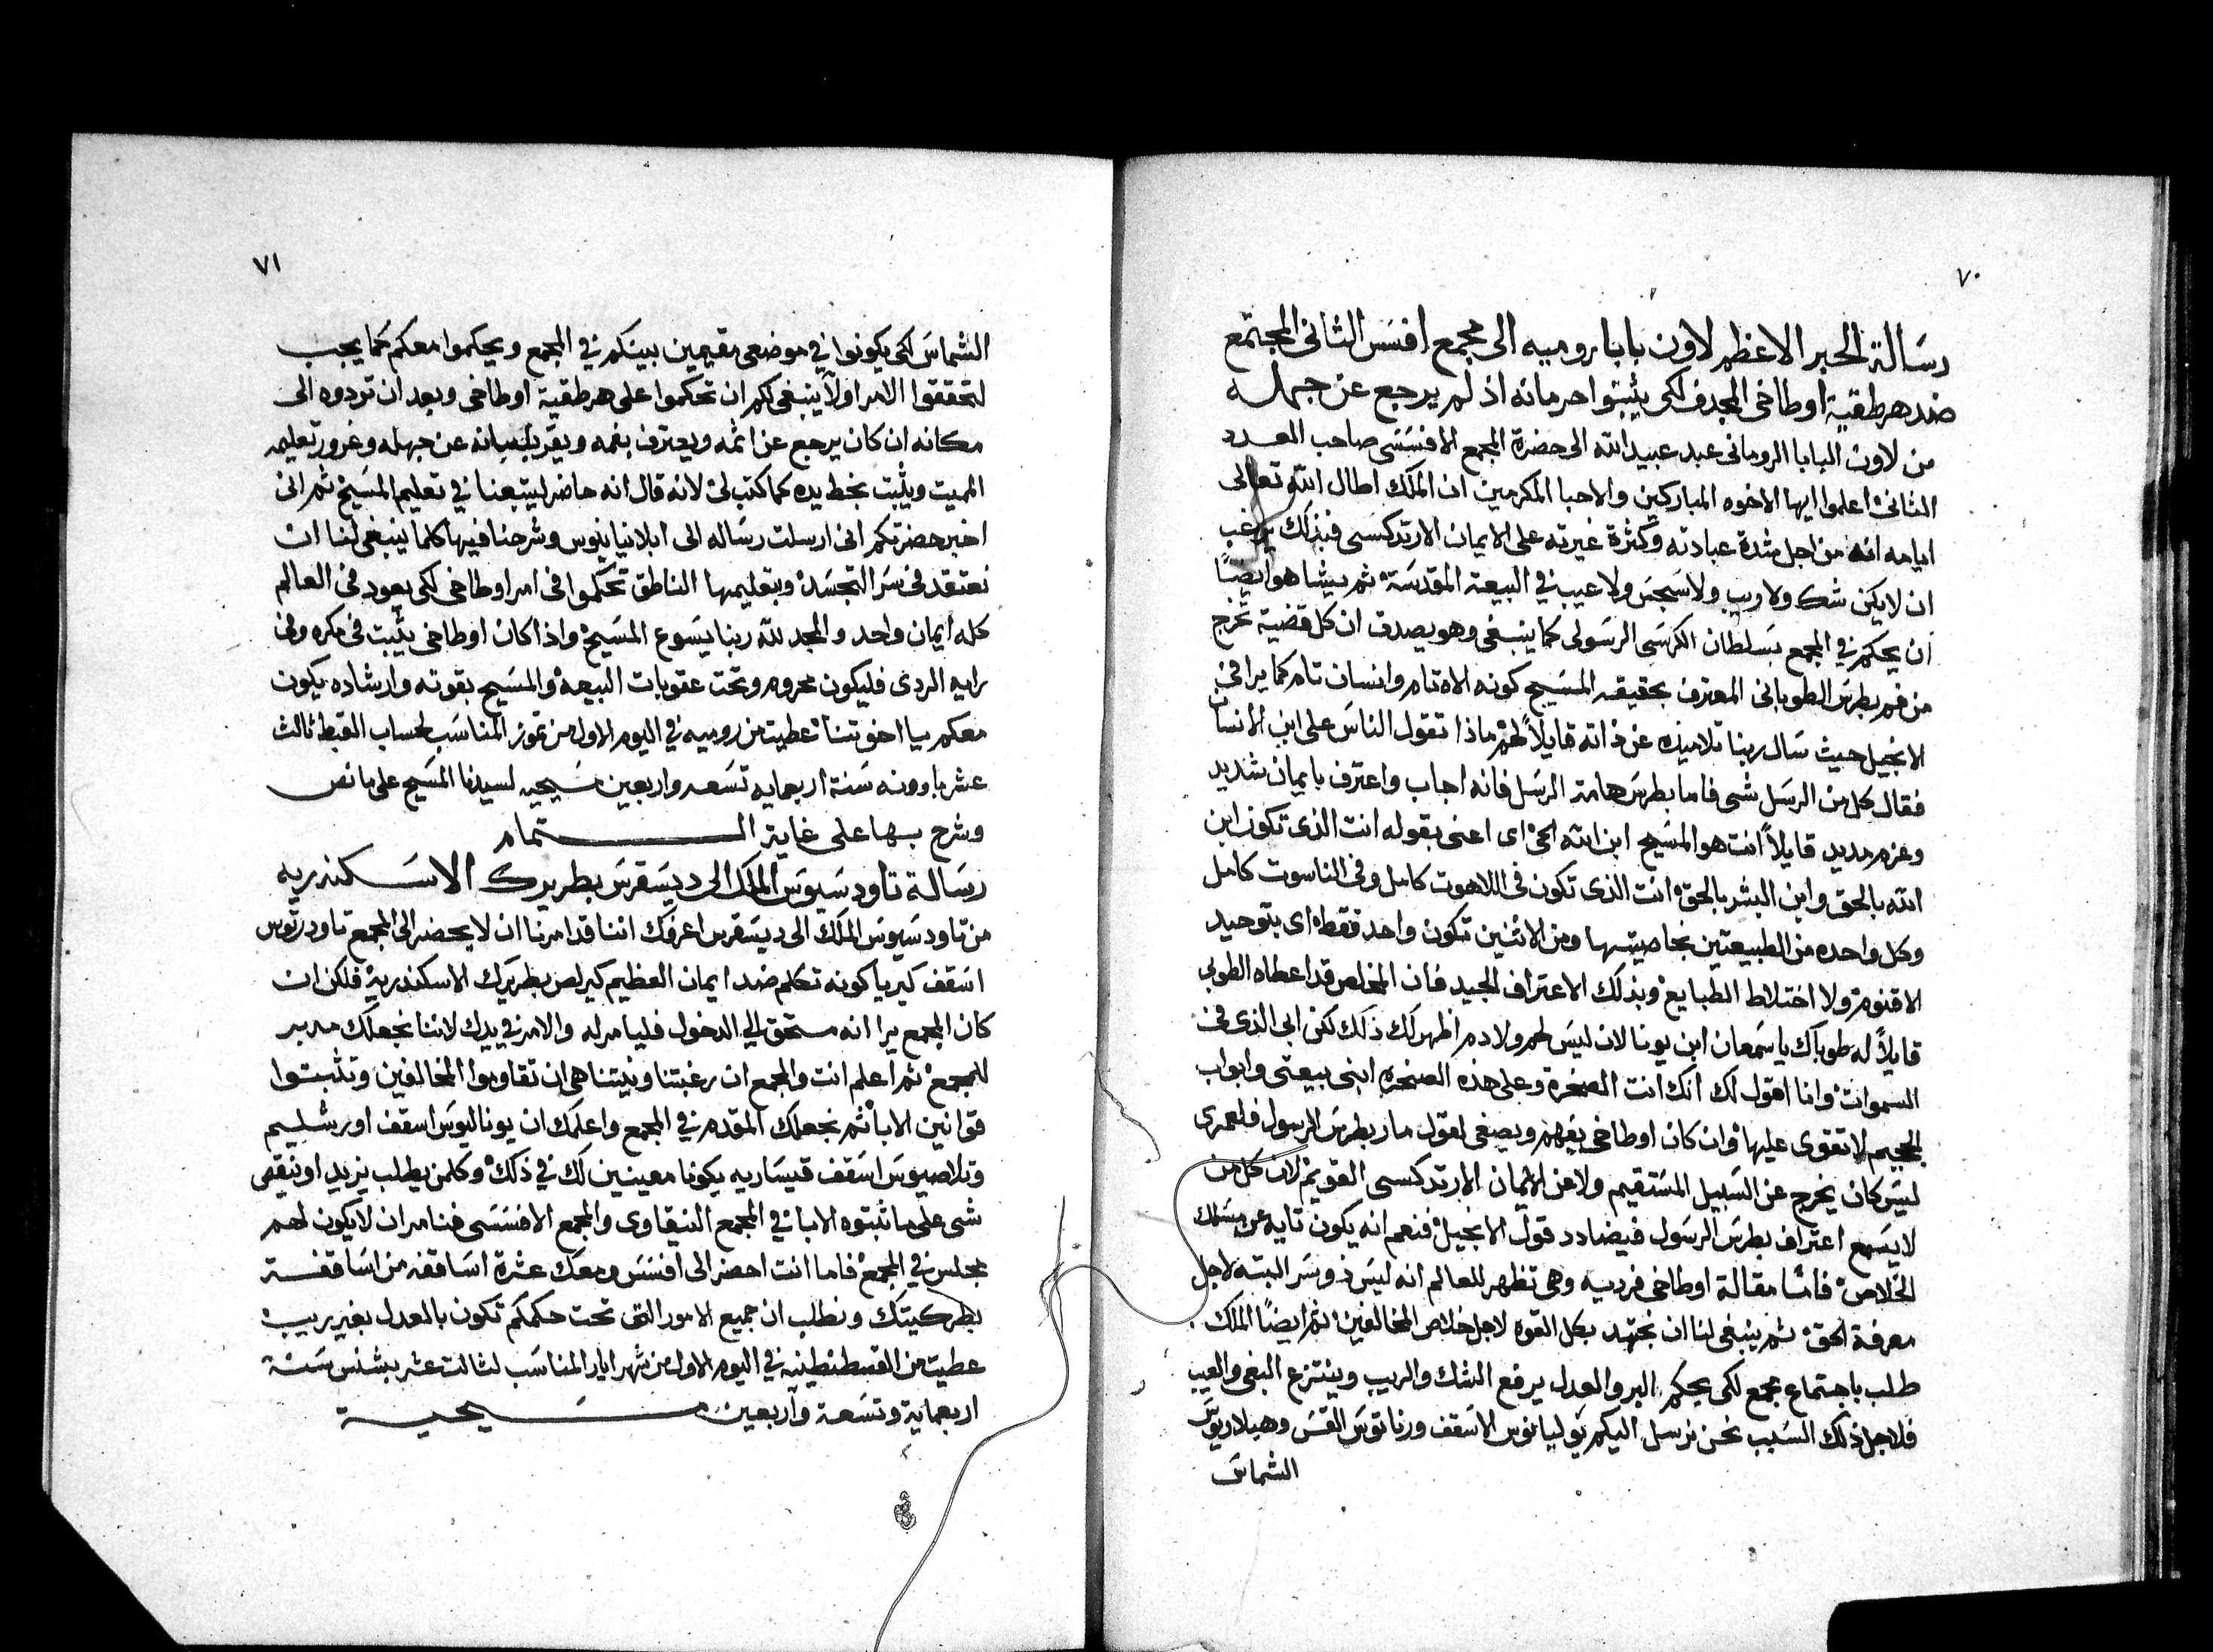 ٧٠
رسالة الحبر الاعظم لاون بابا روميه الى مجمع افسس الثانى المجتمع
ضد هرطقية اوطاخى المجدف لكى يثبتوا حرمانه اذ لم يرجع عن جهله
من لاون البابا الرومانى عبد عبيد الله الى حضرة المجمع الافسسى صاحب العدد
الثانى اعلموا ايها الاخوه المباركين والاحبا المكرمين ان الملك اطال الله تعالى
ايامه انه من اجل شدة عبادته وكثرة غيرته على الايمان الارتدكسى فبذلك يرغب
ان لا يكن شك ولا ريب ولا سجس ولا عيب في البيعة المقدسة ثم يشا هو ايضًا
ان يحكم في المجمع بسلطان الكرسى الرسولى كما ينبغى وهو يصدق ان كل قضية تخرج
من فم بطرس الطوبانى المعترف بحقيقة المسيح كونه الاه تام وانسان تام كما يرا في
الانجيل حيث سال ربنا تلاميذه عن ذاته قايلاً لهم ماذا تقول الناس على ابن الانسان
فقال كل من الرسل شى فاما بطرس هامة الرسل فانه اجاب واعترف بايمان شديد
وعزم مديد قايلاً انت هو المسيح ابن الله الحى اى اعنى بقوله انت الذى تكون ابن
الله بالحق وابن البشر بالحق انت الذى تكون فى اللاهوت كامل وفى الناسوت كامل
وكل واحده من الطبيعتين بخاصيتها ومن الاثنين تكون واحد فقط اى بتوحيد
الاقنوم ولا اختلاط الطبايع وبذلك الاعتراف المجيد فان المخلص قد اعطاه الطوبى
قايلاً له طوباك يا سمعان ابن يونا لان ليس لحم ولا دم اظهر لك ذلك لكن ابى الذى فى
السموات وانا اقول لك انك انت الصخرة وعلى هذه الصخره ابنى بيعتى وابواب
الجحيم لا تقوى عليها وان كان اوطاخى يفهم ويصغى لقول مار بطرس الرسول فلعمرى
ليس كان يخرج عن السبيل المستقيم ولا عن الايمان الارتدكسى القويم لان كل من
لا يسمع اعتراف بطرس الرسول فيضادد قول الانجيل فنعم انه يكون تايه عن مسلك
الخلاص فامّا مقالة اوطاخى فرديه وهى تظهر للعالم انه ليس ذو سر البته لاجل
معرفة الحق ثم ينبغى لنا ان نجتهد بكل القوه لاجل خلاص المخالفين ثم ايضًا الملك
طلب باجتماع مجمع لكى يحكم البر والعدل يرفع الشك والريب وينتزع البغى والعيب
فلاجل ذلك السبب نحن نرسل اليكم يوليانوس الاسقف ورناتوس القس وهيلاريوس
الشماس
٧١
الشماس لكى يكونوا في موضعى مقيمين بينكم في المجمع ويحكموا معكم كما يجب
لتحققوا الامر اولاً ينبغى لكم ان تحكموا على هرطقية اوطاخى وبعد ان تردوه الى
مكانه ان كان يرجع عن اثمه ويعترف بفمه ويقر بلسانه عن جهله وغرور تعليمه
المميت ويثبت بخط يده كما كتب لى لانه قال انه حاضر ليتبعنا في تعليم المسيح ثم انى
اخبر حضرتكم انى ارسلت رساله الى ابلانيانوس وشرحنا فيها كلما ينبغى لنا ان
نعتقد فى سر التجسد وبتعليمها الناطق تحكموا فى امر اوطاخى لكى يعود فى العالم
كله ايمان واحد والمجد لله ربنا يسوع المسيح واذا كان اوطاخى يثبت فى مكره وفى
رايه الردى فليكون محروم وتحت عقوبات البيعه والمسيح بقوته وارشاده يكون
معكم يا اخوتنا عطيت من روميه في اليوم الاول من تموز المناسب لحساب القبط ثالث
عشر باوونه سنة اربعمايه تسعه واربعين مسيحيه لسيدنا المسيح على ما نص
وشرح بها على غاية التمام
رسالة تاودسيوس الملك الى ديسقرس بطريرك الاسكندريه
من تاودسيوس الملك الى ديسقرس اعرفك اننا قد امرنا ان لا يحضر الى المجمع تاودرتوس
اسقف كيريا كونه تكلم ضد ايمان العظيم كيرلص بطريرك الاسكندرية فلكن ان
كان المجمع يرا انه مستحق الى الدخول فليامر له والامر في يدك لاننا نجعلك مدبر
للمجمع ثم اعلم انت والمجمع ان رغبتنا ونيتنا هى ان تقاوموا المخالفين وتثبتوا
قوانين الابا ثم نجعلك المقدم في المجمع واعلمك ان يوناليوس اسقف اورشليم
وتلاصيوس اسقف قيساريه يكونا معينين لك في ذلك وكلمن يطلب يزيد او ينقص
شى على ما ثبتوه الابا في المجمع النيقاوى والمجمع الافسسى فنامر ان لا يكون لهم
مجلس في المجمع فاما انت احضر الى افسس ومعك عشرة اساقفه من اساقفة
بطركيتك ونطلب ان جميع الامور التى تحت حكمكم تكون بالعدل بغير ريب
عطيت من القسطنطينيه في اليوم الاول من شهر ايار المناسب لثالث عشر بشنس سنة
اربعماية وتسعة واربعين مسيحية